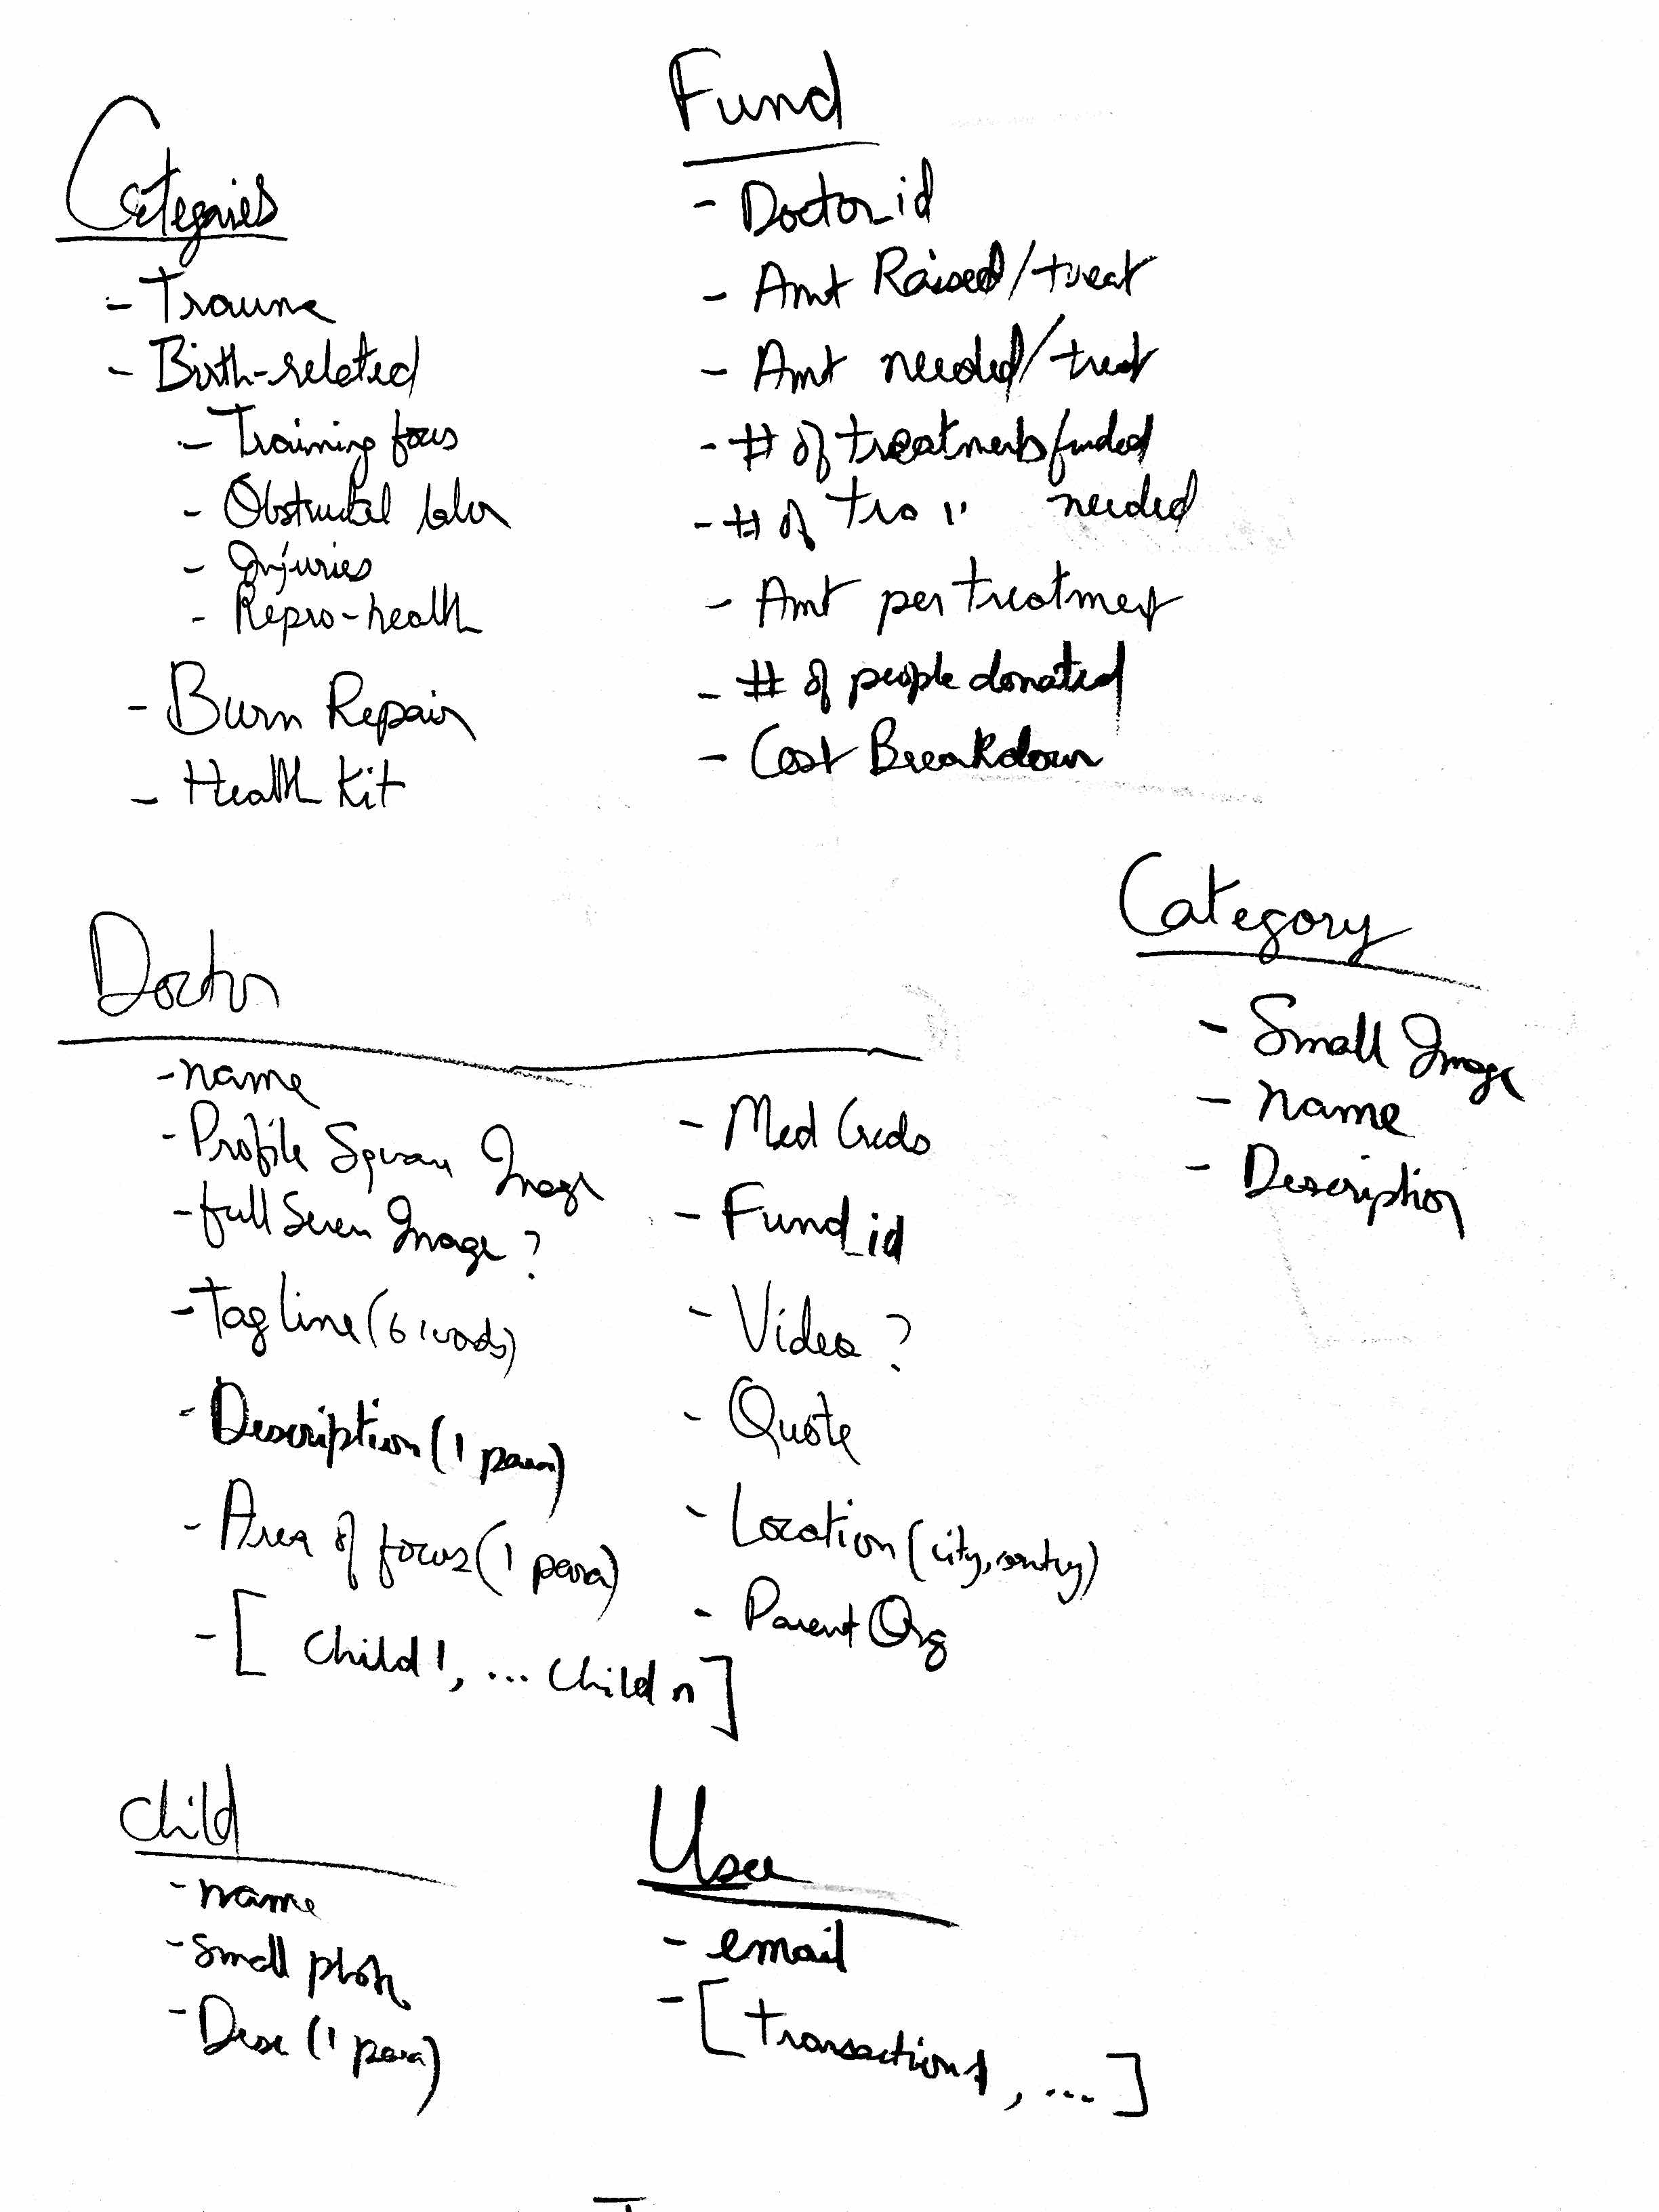 Categories
- Trauma
- Birth-related
- Training focus
- Obstructed labor
- Injuries
- Repro-health
- Burn Repair
- Health Kit
Fund
- Doctor_id
- Amt Raised/treat
- Amt needed/treat
- # of treatments funded
- # of trea " needed
- Amt per treatment
- # of people donated
- Cost Breakdown
Doctor
- name
- Profile Square Image
- full Screen Image ?
- Tag line (6 words)
- Description (1 para)
- Area of focus (1 para)
- [ Child 1, ... Child n ]
- Med Creds
- Fund_id
- Video ?
- Quote
- Location (city, country)
- Parent Org
Category
- Small Image
- name
- Description
Child
- name
- small photo
- Desc (1 para)
User
- email
- [ transaction 1, .... ]